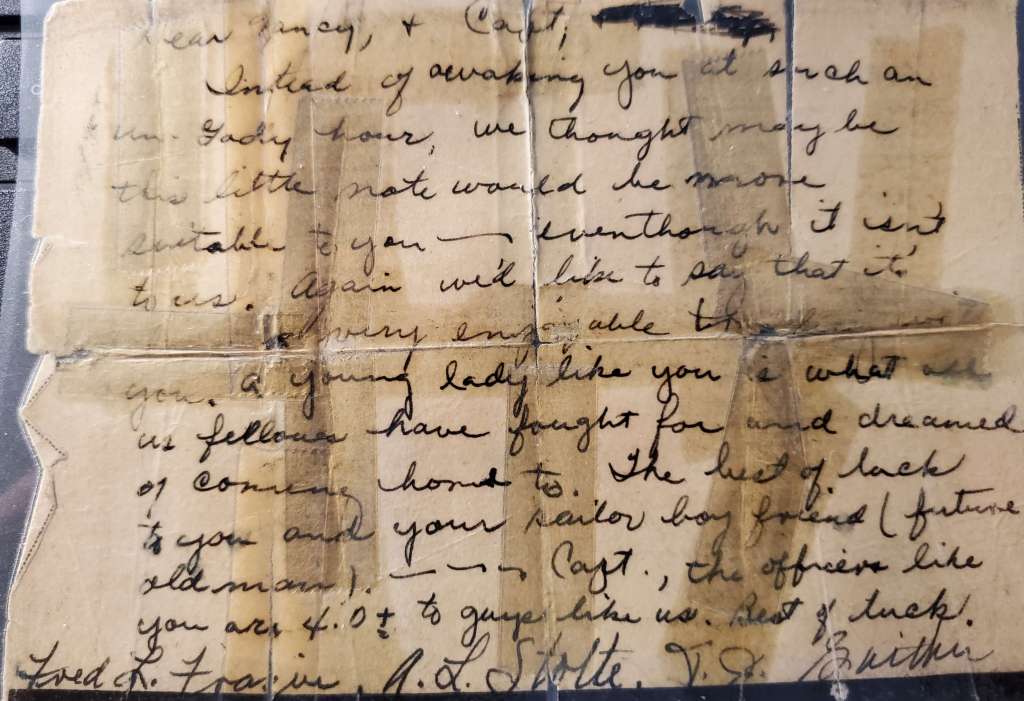 Dear Nancy, + Capt,
Intead of awaking you at such an
un-Gody hour, we thought may be
this little note would be more
suitable to you — eventhough it isn't
to us. Again we'd like to say that it
very enjoyable
you. A young lady like you is what all
us fellows have fought for and dreamed
of coming home to. The best of luck
to you and your sailor boy friend (future
old man). — — — Capt., the officers like
you are 4.0 ± to guys like us. Best of luck.
Fred L. Frasier, A. L. Stolte. T. J. Gaither